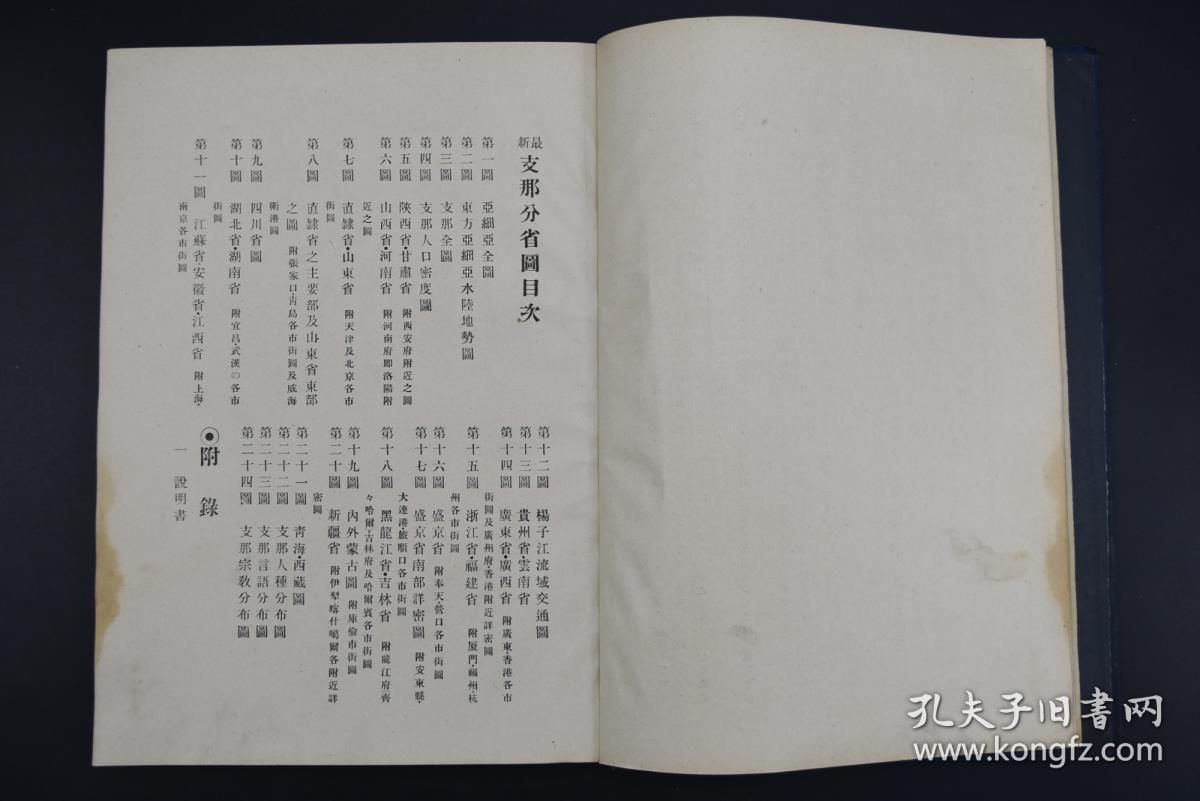 最新 支那分省圖目次
第一圖 亞細亞全圖
第二圖 東方亞細亞水陸地勢圖
第三圖 支那全圖
第四圖 支那人口密度圖
第五圖 陝西省・甘肅省 附西安府附近之圖
第六圖 山西省・河南省 附河南府即洛陽附
近之圖
第七圖 直隸省・山東省 附天津及北京各市
街圖
第八圖 直隸省之主要部及山東省東部
之圖 附張家口・靑島各市街圖及威海
衛港圖
第九圖 四川省圖
第十圖 湖北省・湖南省 附宜昌・武漢の各市
街圖
第十一圖 江蘇省・安徽省・江西省 附上海・
南京各市街圖
第十二圖 楊子江流域交通圖
第十三圖 貴州省・雲南省
第十四圖 廣東省・廣西省 附廣東・香港各市
街圖及廣州府・香港附近詳密圖
第十五圖 浙江省・福建省 附厦門・福州・杭
州各市街圖
第十六圖 盛京省 附奉天・營口各市街圖
第十七圖 盛京省南部詳密圖 附安東縣・
大連港・旅順口各市街圖
第十八圖 黑龍江省・吉林省 附龍江府齊
々哈爾・吉林府及哈爾賓各市街圖
第十九圖 內外蒙古圖 附庫倫市街圖
第二十圖 新疆省 附伊犁喀什噶爾各附近詳
密圖
第二十一圖 靑海・西藏圖
第二十二圖 支那人種分布圖
第二十三圖 支那言語分布圖
第二十四圖 支那宗敎分布圖
◉附錄
一 說明書
孔夫子旧书网
www.kongfz.com